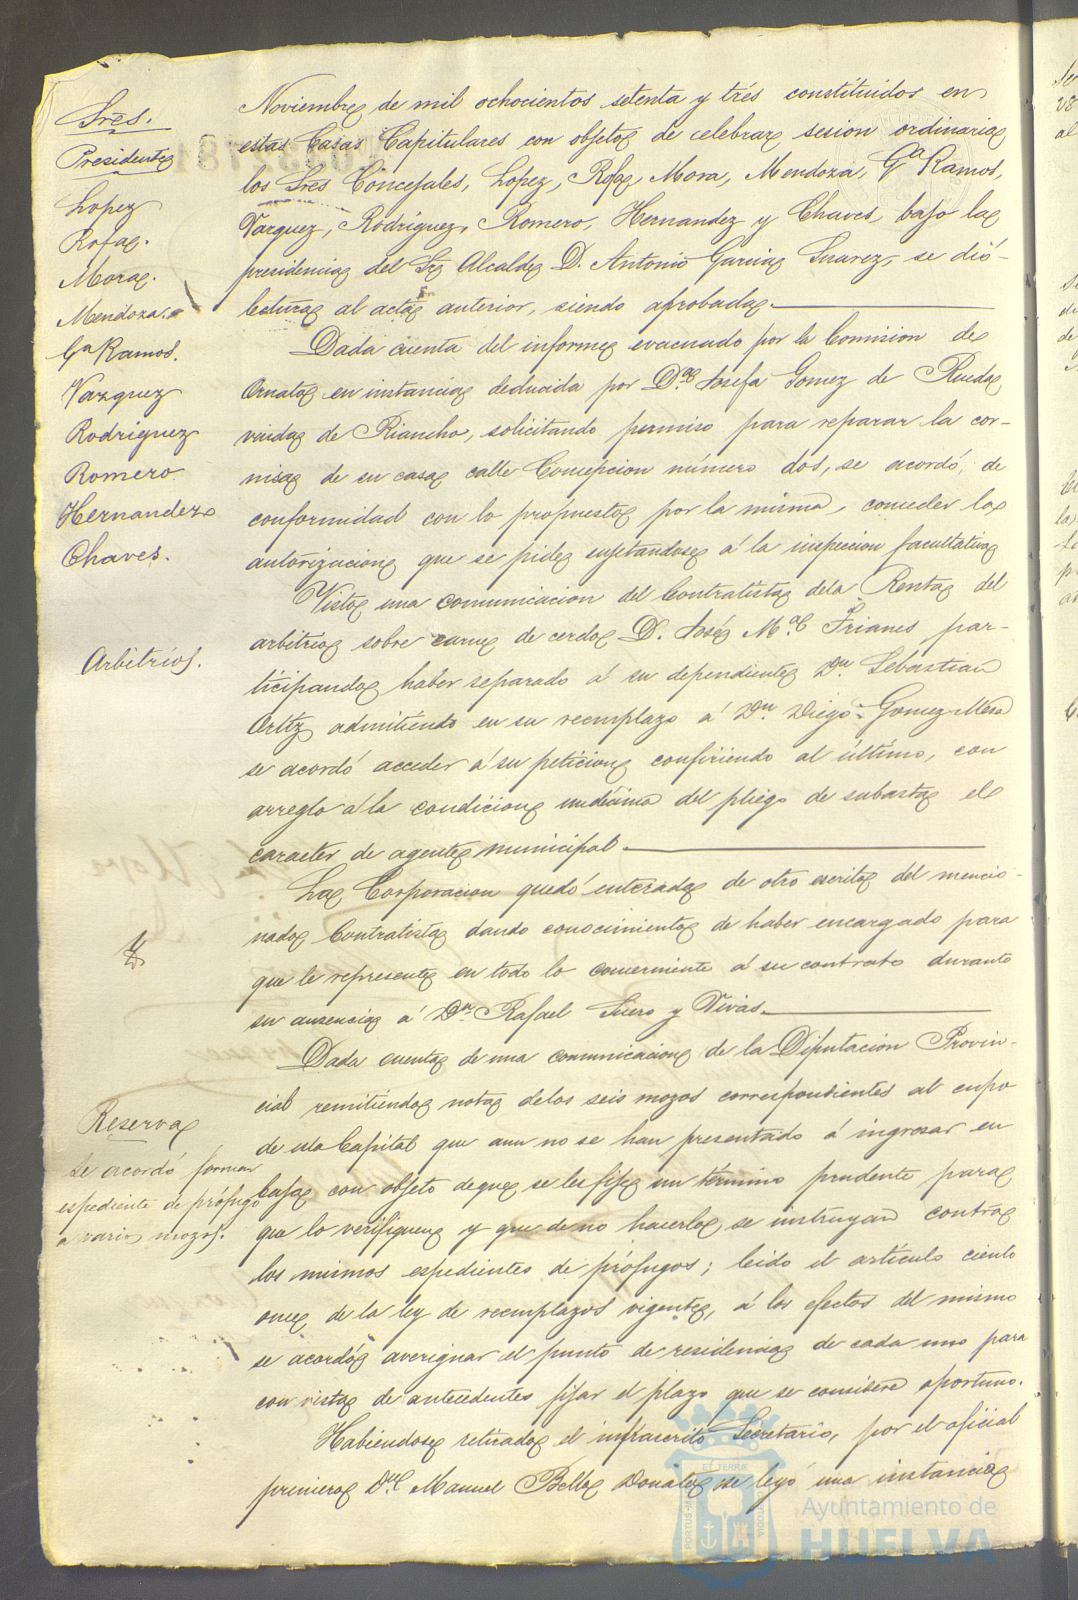 Sres.
Presidente
Lopez
Rofa.
Mora.
Mendoza.
Gª Ramos.
Vazquez
Rodriguez
Romero.
Hernandez
Chaves.
Noviembre de mil ochocientos setenta y trés constituidos en
estas Casas Capitulares con objeto de celebrar sesion ordinaria
los Sres Concejales, Lopez, Rofa, Mora, Mendoza, Gª Ramos,
Vazquez, Rodriguez, Romero, Hernandez y Chaves, bajo la
presidencia del Sr Alcalde D. Antonio Garcia Suarez, se dió
lectura al acta anterior, siendo aprobada.
Dada cuenta del informe evacuado por la Comision de
Ornato en instancia deducida por D.ª Josefa Gomez de Rueda
viuda de Riancho, solicitando permiso para reparar la cor-
nisa de su casa calle Concepcion número dos, se acordó, de
conformidad con lo propuesto por la misma, conceder la
autorizacion que se pide sujetandose á la inspeccion facultativa
Arbitrios.
Vista una comunicacion del Contratista dela Renta del
arbitrio sobre carne de cerdo D. José M.ª Frianes par-
ticipando haber separado á su dependiente Dn. Sebastian
Ortiz admitiendo en su reemplazo á Dn. Diego Gomez Mesa
se acordó acceder á su peticion confiriendo al último, con
arreglo á la condicion undécima del pliego de subasta el
caracter de agente municipal.
La Corporacion quedó enterada de otro escrito del mencio-
nado Contratista dando conocimiento de haber encargado para
que le represente en todo lo concerniente á su contrato durante
su ausencia á Dn. Rafael Suero y Vivas.
Reserva
Se acordó formar
espediente de prófugo
a varios mozos.
Dada cuenta de una comunicacion de la Diputacion Provin-
cial remitiendo nota delos seis mozos correspondientes al cupo
de esta Capital que aun no se han presentado á ingresar en
Caja con objeto deque se les fije un término prudente para
que lo verifiquen y que deno hacerlo, se instruyan contra
los mismos espedientes de prófugos; leido el artículo ciento
once de la ley de reemplazos vigente, á los efectos del mismo
se acordó averiguar el punto de residencia de cada uno para
con vista de antecedentes fijar el plazo que se considere oportuno.
Habiendose retirado el infrascrito Secretario, por el oficial
primero Dn. Manuel Bello Donate se leyó una instancia
Ayuntamiento de
HUELVA